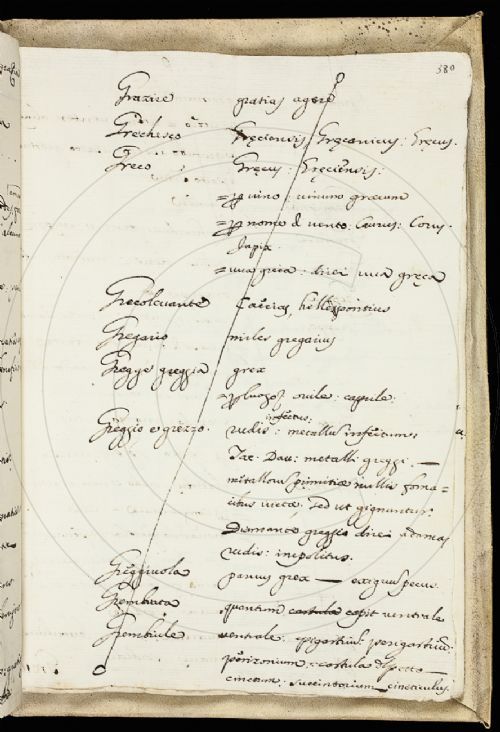 380
Grazire gratias agere
Grechesco Gręciensis, Gręcanicus: Gręcus.
Greco Gręcus: Gręciensis:
= vino: vinum gręcum
= nome di vento. Caurus: Corus.
Iapix.
= uva greca: dicei uva gręca
Grecolevante Caecias, hellespontius
Gregario miles gregarius
Gregge greggia grex
= luogo ovile: capsula:
infectus:
Greggio e grezzo. rudis: metallus infectum:
Tac. Dav: metalli greggi. —
metallorum primitiæ nullis forna=
cibus sed ut gignuntur:
Diamante greggio dicei adamas
rudis: inpolitus.
Greggiuola parvus grex — exiguus pecus.
Grembiata quantum capit ventrale
Grembiule ventrale:
cinctum: succintorium cincticulus.